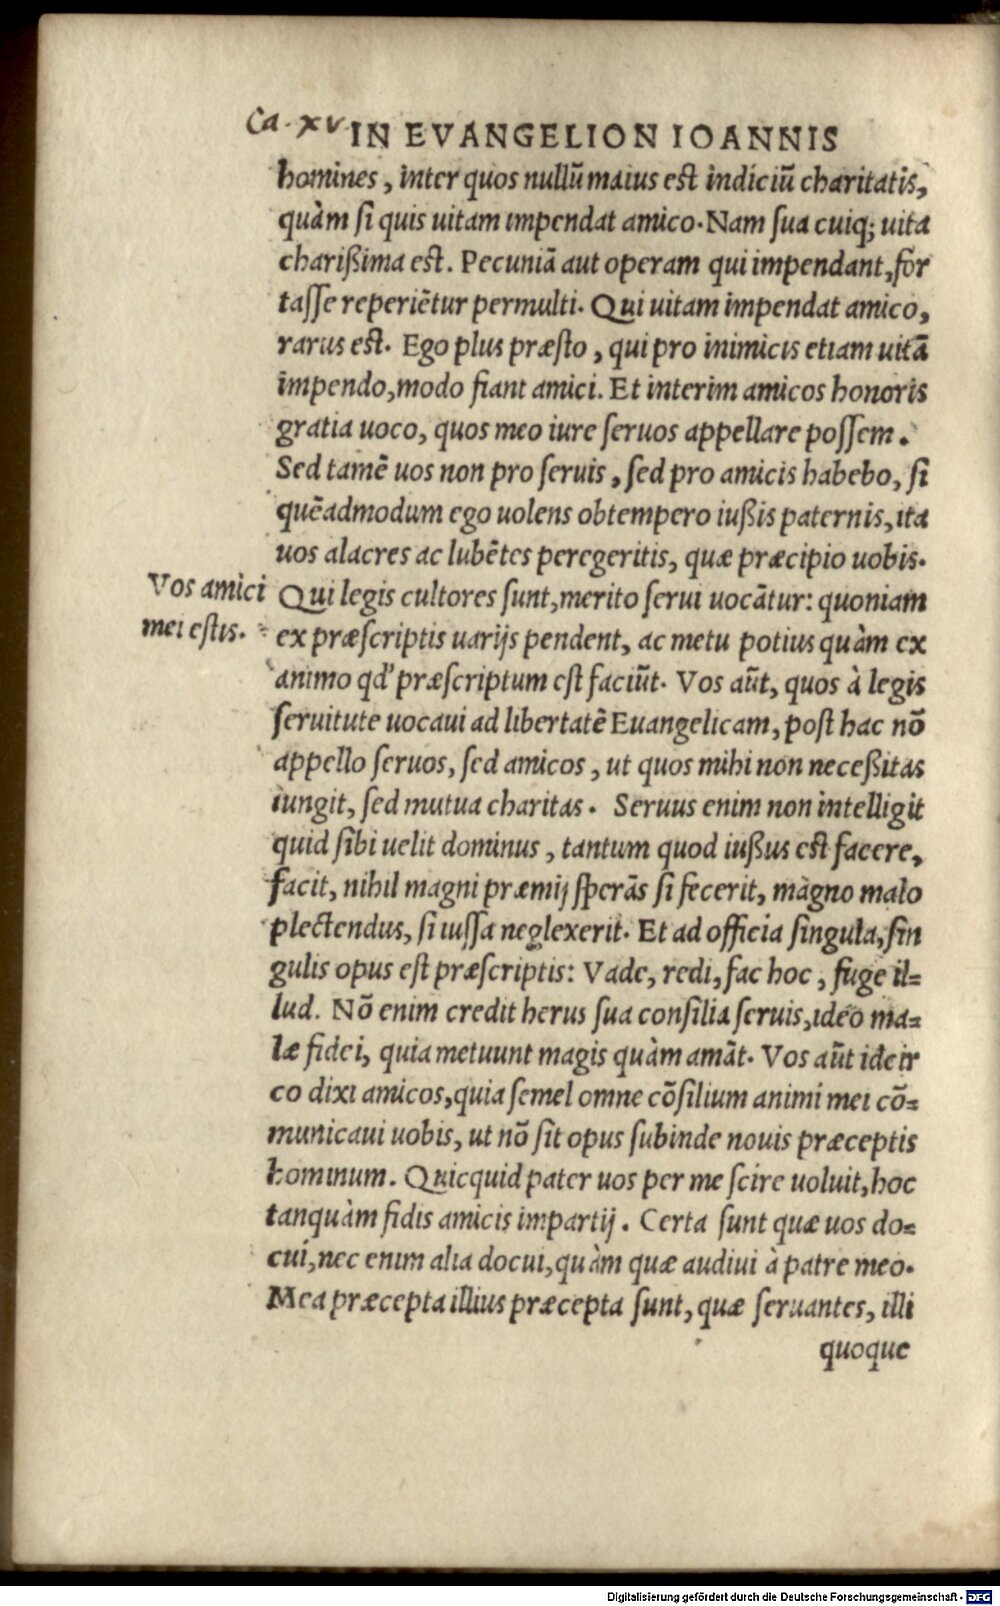 Ca. xv
IN EVANGELION IOANNIS
homines, inter quos nullū maius est indiciū charitatis,
quàm si quis uitam impendat amico. Nam sua cuiq; uita
charißima est. Pecuniā aut operam qui impendant, for
tasse reperiētur permulti. Qui uitam impendat amico,
rarus est. Ego plus præsto, qui pro inimicis etiam uitā
impendo, modo fiant amici. Et interim amicos honoris
gratia uoco, quos meo iure seruos appellare possem.
Sed tamē uos non pro seruis, sed pro amicis habebo, si
quēadmodum ego uolens obtempero iußis paternis, ita
uos alacres ac lubētes peregeritis, quæ præcipio uobis.
Vos amici
mei estis.
Qui legis cultores sunt, merito serui uocātur: quoniam
ex præscriptis uarijs pendent, ac metu potius quàm ex
animo qd' præscriptum est faciūt. Vos aūt, quos à legis
seruitute uocaui ad libertatē Euangelicam, post hac nō
appello seruos, sed amicos, ut quos mihi non neceßitas
iungit, sed mutua charitas. Seruus enim non intelligit
quid sibi uelit dominus, tantum quod iußus est facere,
facit, nihil magni præmij sperās si fecerit, magno malo
plectendus, si iussa neglexerit. Et ad officia singula, sin
gulis opus est præscriptis: Vade, redi, fac hoc, fuge il=
lud. Nō enim credit herus sua consilia seruis, ideo ma=
læ fidei, quia metuunt magis quàm amāt. Vos aūt idcir
co dixi amicos, quia semel omne cōsilium animi mei cō=
municaui uobis, ut nō sit opus subinde nouis præceptis
hominum. Quicquid pater uos per me scire uoluit, hoc
tanquàm fidis amicis impartij. Certa sunt quæ uos do=
cui, nec enim alia docui, quàm quæ audiui à patre meo.
Mea præcepta illius præcepta sunt, quæ seruantes, illi
quoque
Digitalisierung gefördert durch die Deutsche Forschungsgemeinschaft - DFG